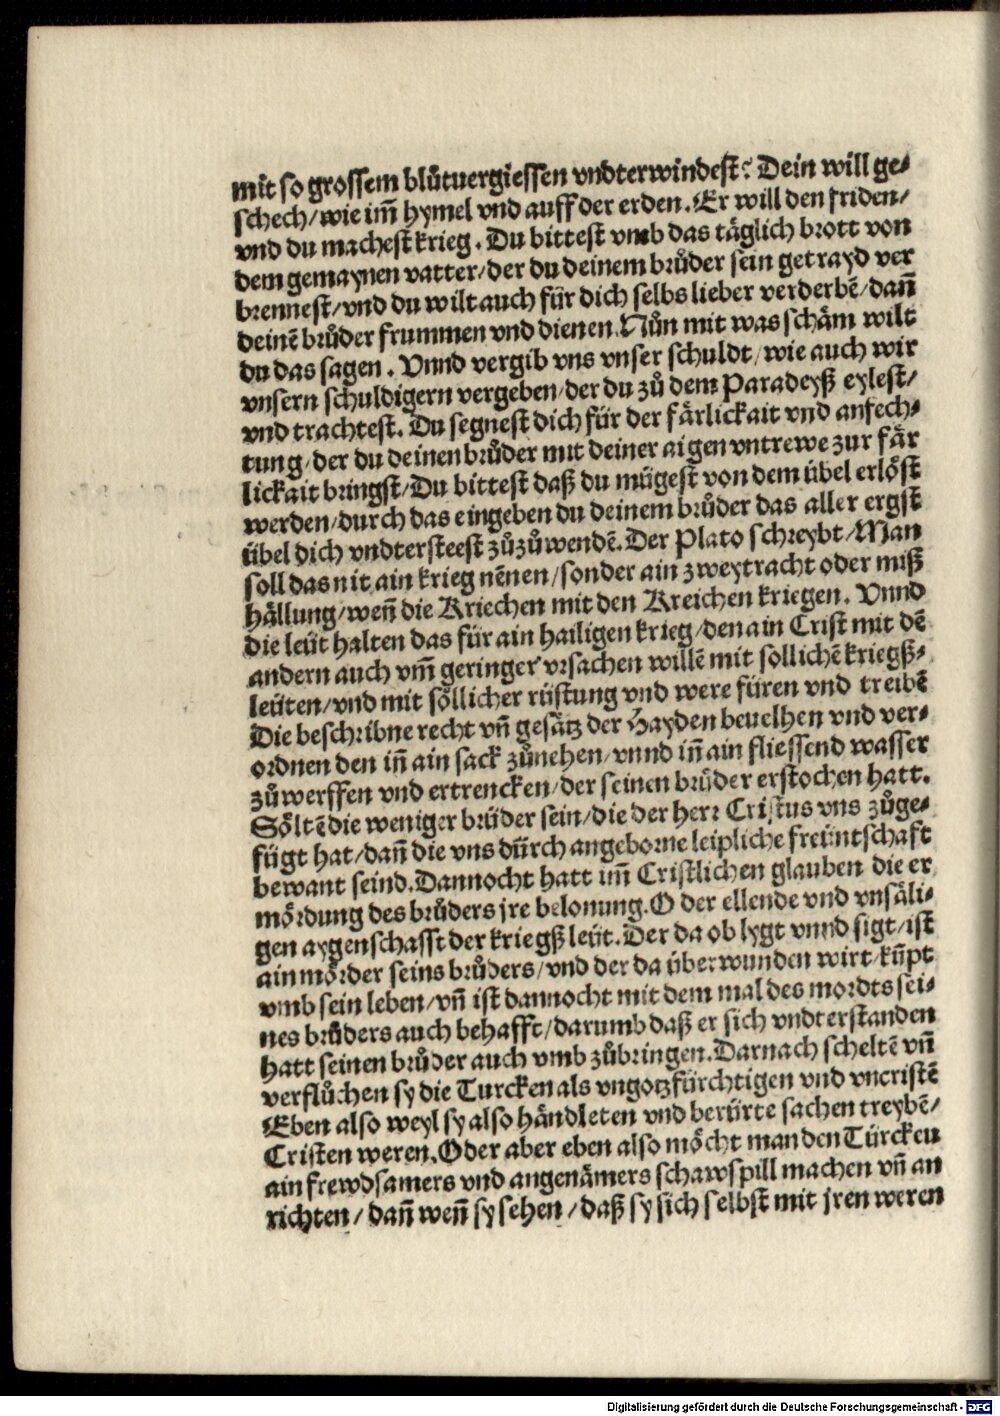 mit so grossem blůtuergiessen vndterwindest? Dein will ge-
schech/wie im̃ hymel vnd auff der erden. Er will den friden/
vnd du machest krieg. Du bittest vmb das täglich brott von
dem gemaynen vatter/der du deinem brůder sein getrayd ver
brennest/vnd du wilt auch für dich selbs lieber verderbẽ/dañ
deinẽ brůder frummen vnd dienen. Nůn mit was schäm wilt
du das sagen. Vnnd vergib vns vnser schuldt/wie auch wir
vnsern schuldigern vergeben/der du zů dem Paradeyß eylest/
vnd trachtest. Du segnest dich für der färlickait vnd anfech-
tung/der du deinen brůder mit deiner aigen vntrewe zur fär
lickait bringst/Du bittest daß du mügest von dem übel erlöst
werden/durch das eingeben du deinem brůder das aller ergst
übel dich vndtersteest zůzůwendẽ. Der Plato schreybt/Man
soll das nit ain krieg nẽnen/sonder ain zweytracht oder miß
hällung/weñ die Kriechen mit den Kreichen kriegen. Vnnd
die leüt halten das für ain hailigen krieg/den ain Crist mit dẽ
andern auch vm̃ geringer vrsachen willẽ mit sollichẽ kriegß-
leüten/vnd mit söllicher rüstung vnd were füren vnd treibẽ
Die beschribne recht vñ gesätz der Hayden beuelhen vnd ver-
ordnen den iñ ain sack zůnehen/vnnd iñ ain fliessend wasser
zůwerffen vnd ertrencken/der seinen brůder erstochen hatt.
Söltẽ die weniger brüder sein/die der herr Cristus vns zůge-
fügt hat/dañ die vns dürch angeborne leipliche freüntschaft
bewant seind. Dannocht hatt im̃ Cristlichen glauben die er
mördung des brůders jre belonung. O der ellende vnd vnsäli-
gen aygenschafft der kriegß leüt. Der da ob lygt vnnd sigt/ist
ain mörder seins brůders/vnd der da überwunden wirt/kũpt
vmb sein leben/vñ ist dannocht mit dem mal des mordts sei-
nes brůders auch behafft/darumb daß er sich vndterstanden
hatt seinen brůder auch vmb zůbringen. Darnach scheltẽ vñ
verflůchen sy die Turcken als vngotzfürchtigen vnd vncristẽ
Eben also weyl sy also händleten vnd berürte sachen treybẽ/
Cristen weren. Oder aber eben also möcht man den Türcken
ain frewdsamers vnd angenämers schawspill machen vñ an
richten/dañ weñ sy sehen/daß sy sich selbst mit jren weren
Digitalisierung gefördert durch die Deutsche Forschungsgemeinschaft - DFG